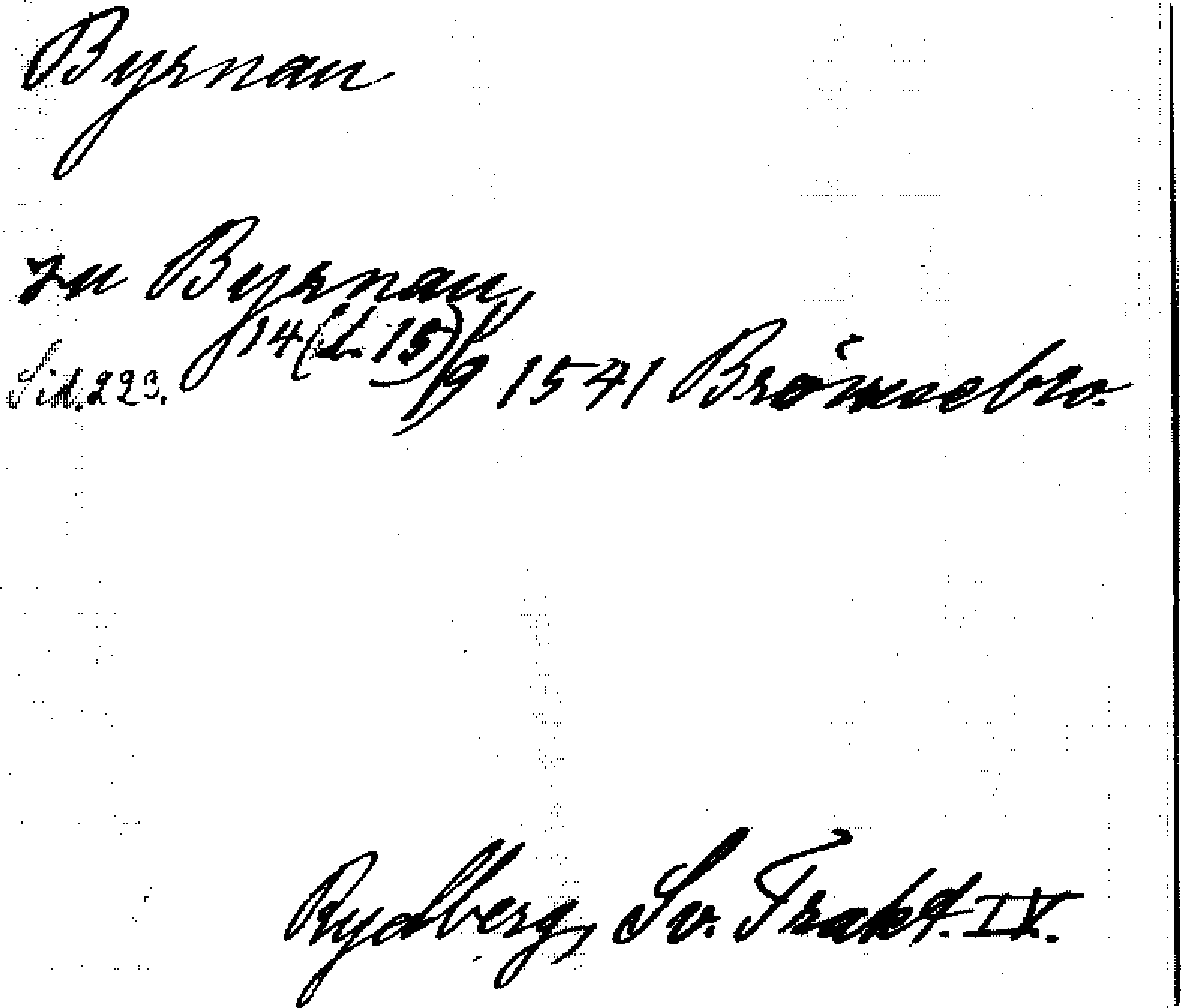 Byrnau
zu Byrnau,
Sid. 223. 14 (d. 15)/9 1541 Brömsebro.
Rydberg, Sv. Trakt. IV.